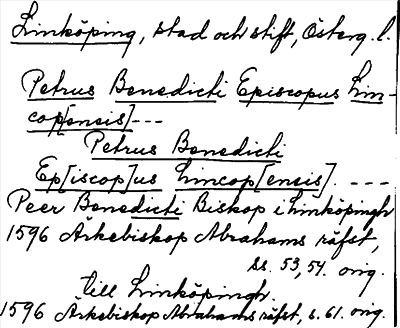 Linköping, stad och stift, Österg. l.
Petrus Benedicti Episcopus Lin-
cop[ensis] ---
Petrus Benedicti
Ep[iscop]us Lincop[ensis]. ---
Peer Benedicti Biskop i Linköpingh
1596 Ärkebiskop Abrahams räfst,
ss. 53, 54. orig.
till Linköpingh.
1596 Ärkebiskop Abrahams räfst, s. 61. orig.